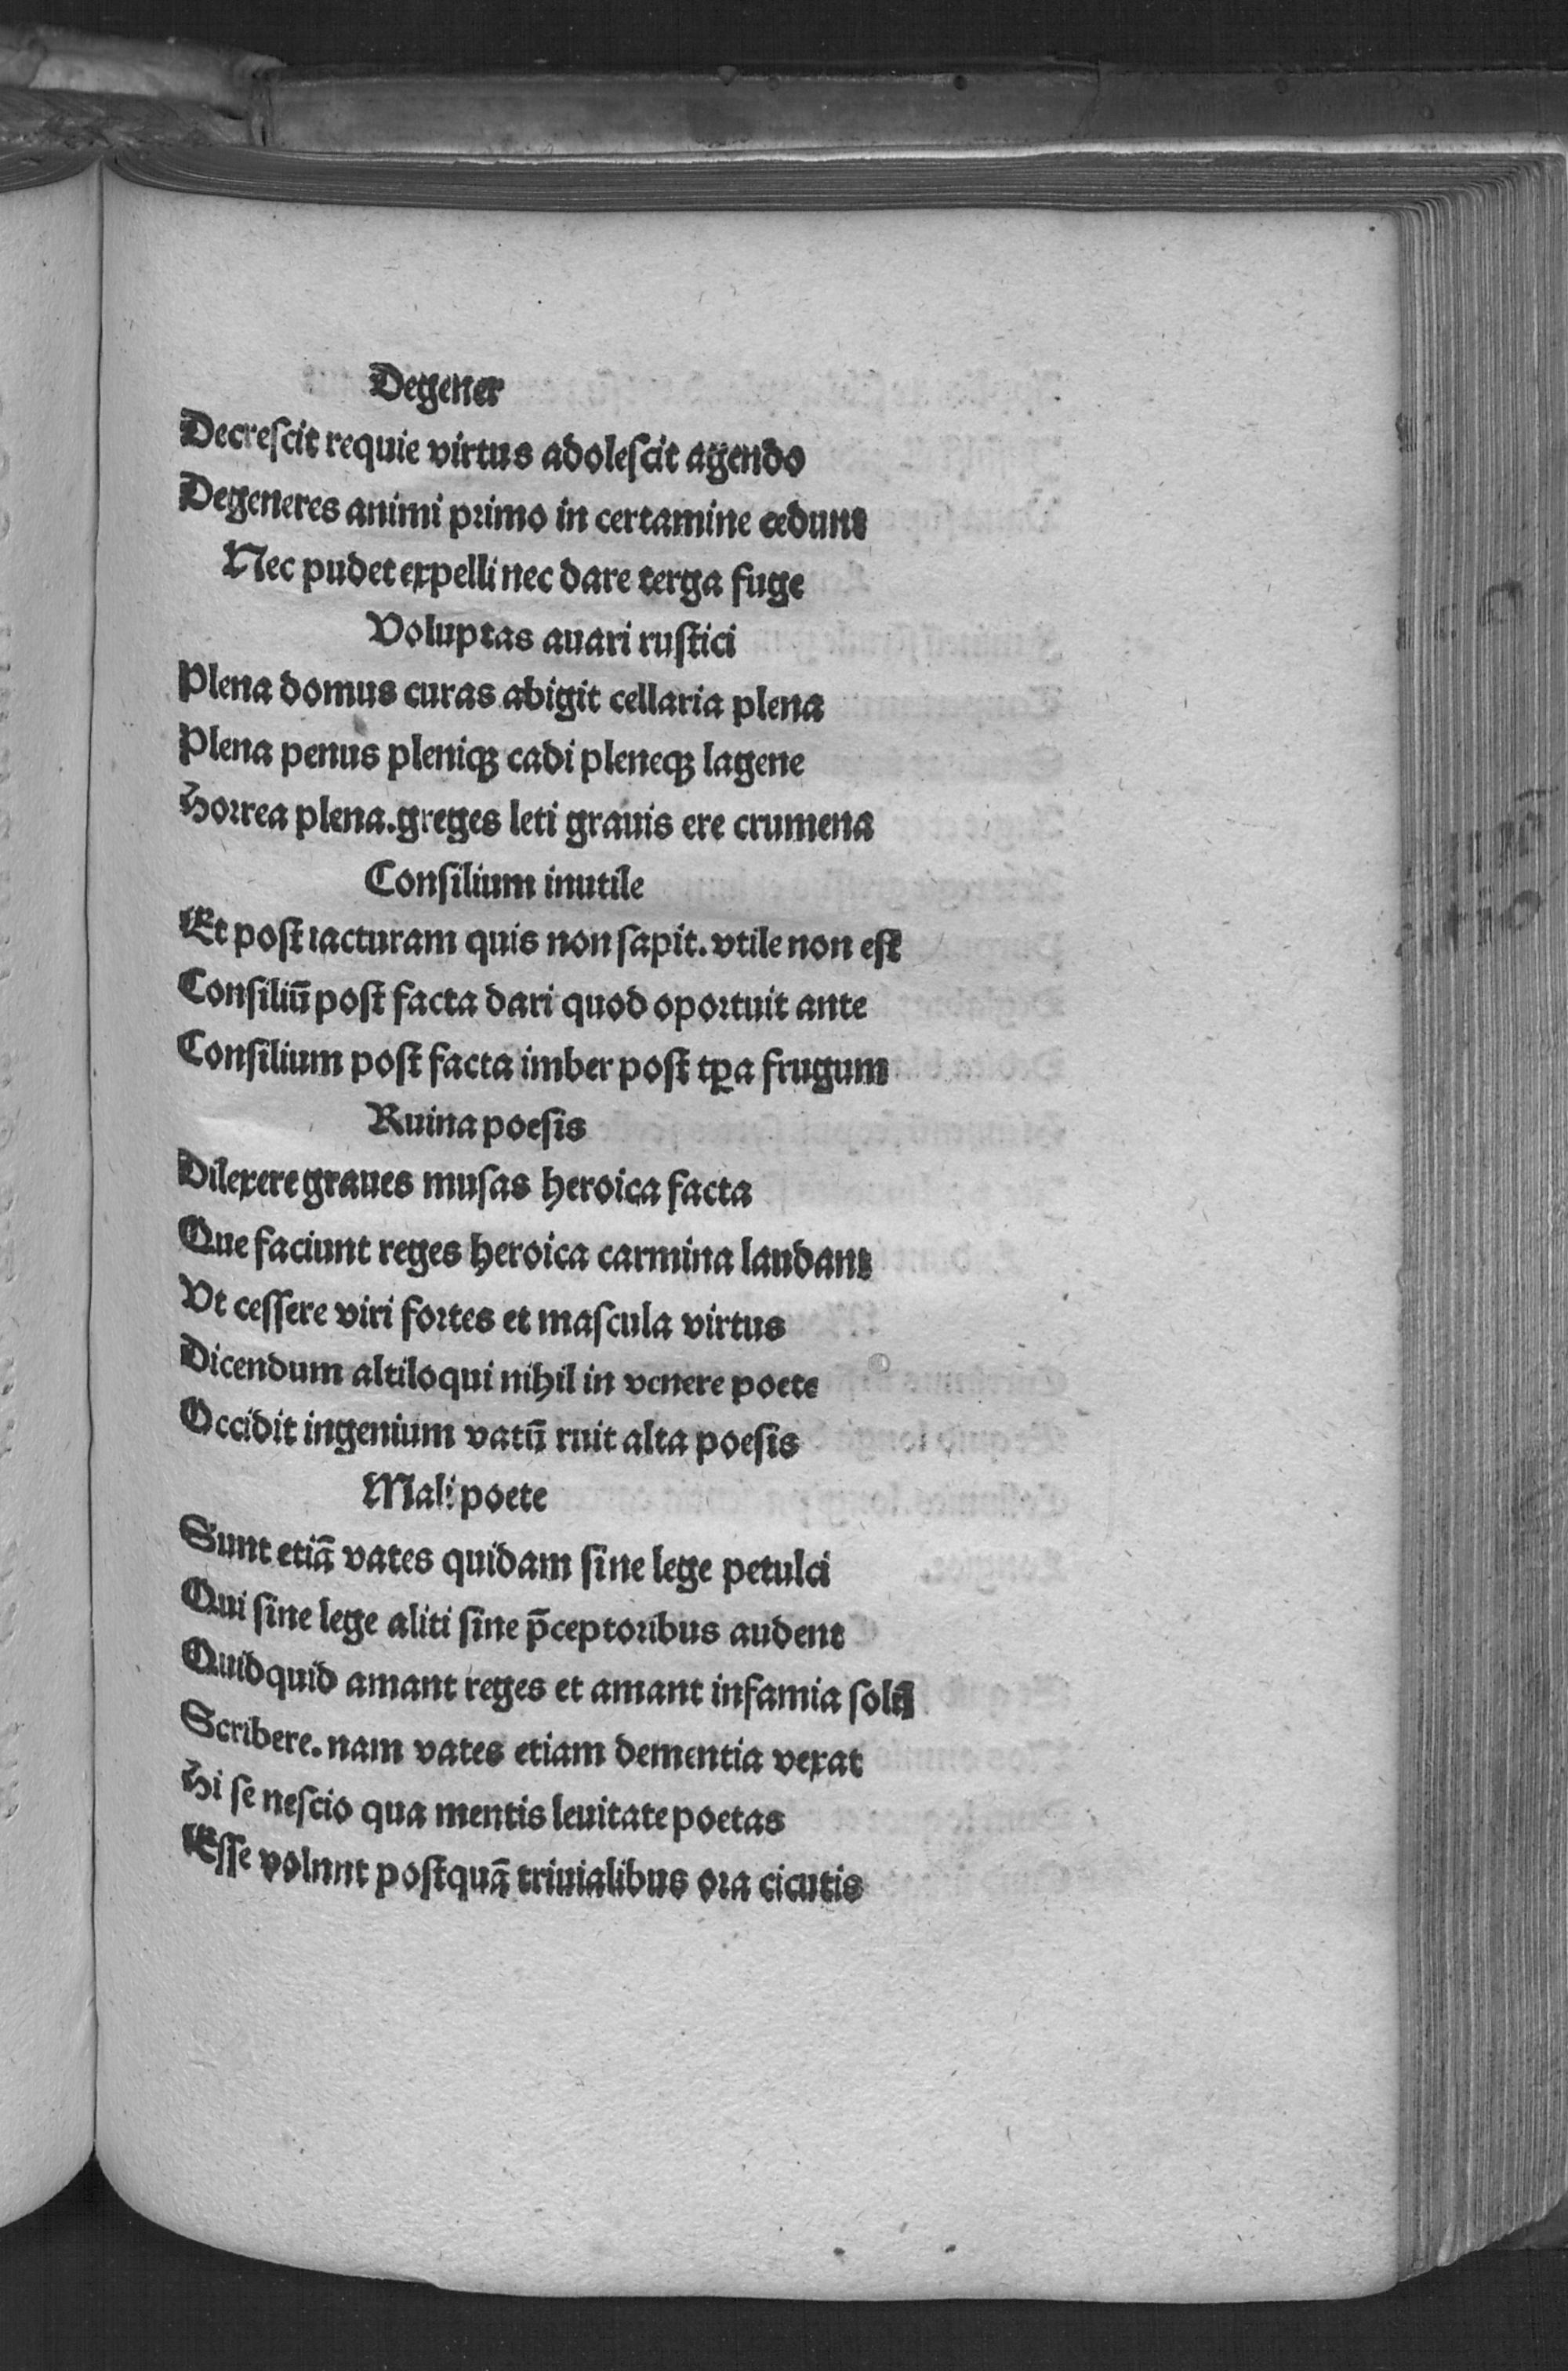 Degener
Decreſcit requie virtus adoleſcit agendo
Degeneres animi primo in certamine cedunt
Nec pudet expelli nec dare terga fuge
Voluptas auari ruſtici
Plena domus curas abigit cellaria plena
Plena penus pleniqꝫ cadi pleneqꝫ lagene
Horrea plena. greges leti grauis ere crumena
Conſilium inutile
Et poſt iacturam quis non ſapit. vtile non eſt
Conſiliū poſt facta dari quod oportuit ante
Conſilium poſt facta imber poſt tꝑa frugum
Ruina poeſis
Dilexere graues muſas heroica facta
Que faciunt reges heroica carmina laudant
Vt ceſſere viri fortes et maſcula virtus
Dicendum altiloqui nihil in venere poete
Occidit ingenium vatū ruit alta poeſis
Mali poete
Sunt etiā vates quidam ſine lege petulci
Qui ſine lege aliti ſine p̄ceptoribus audent
Quidquid amant reges et amant infamia ſolū
Scribere. nam vates etiam dementia vexat
Hi ſe neſcio qua mentis leuitate poetas
Eſſe volunt poſtquā triuialibus ora cicutis